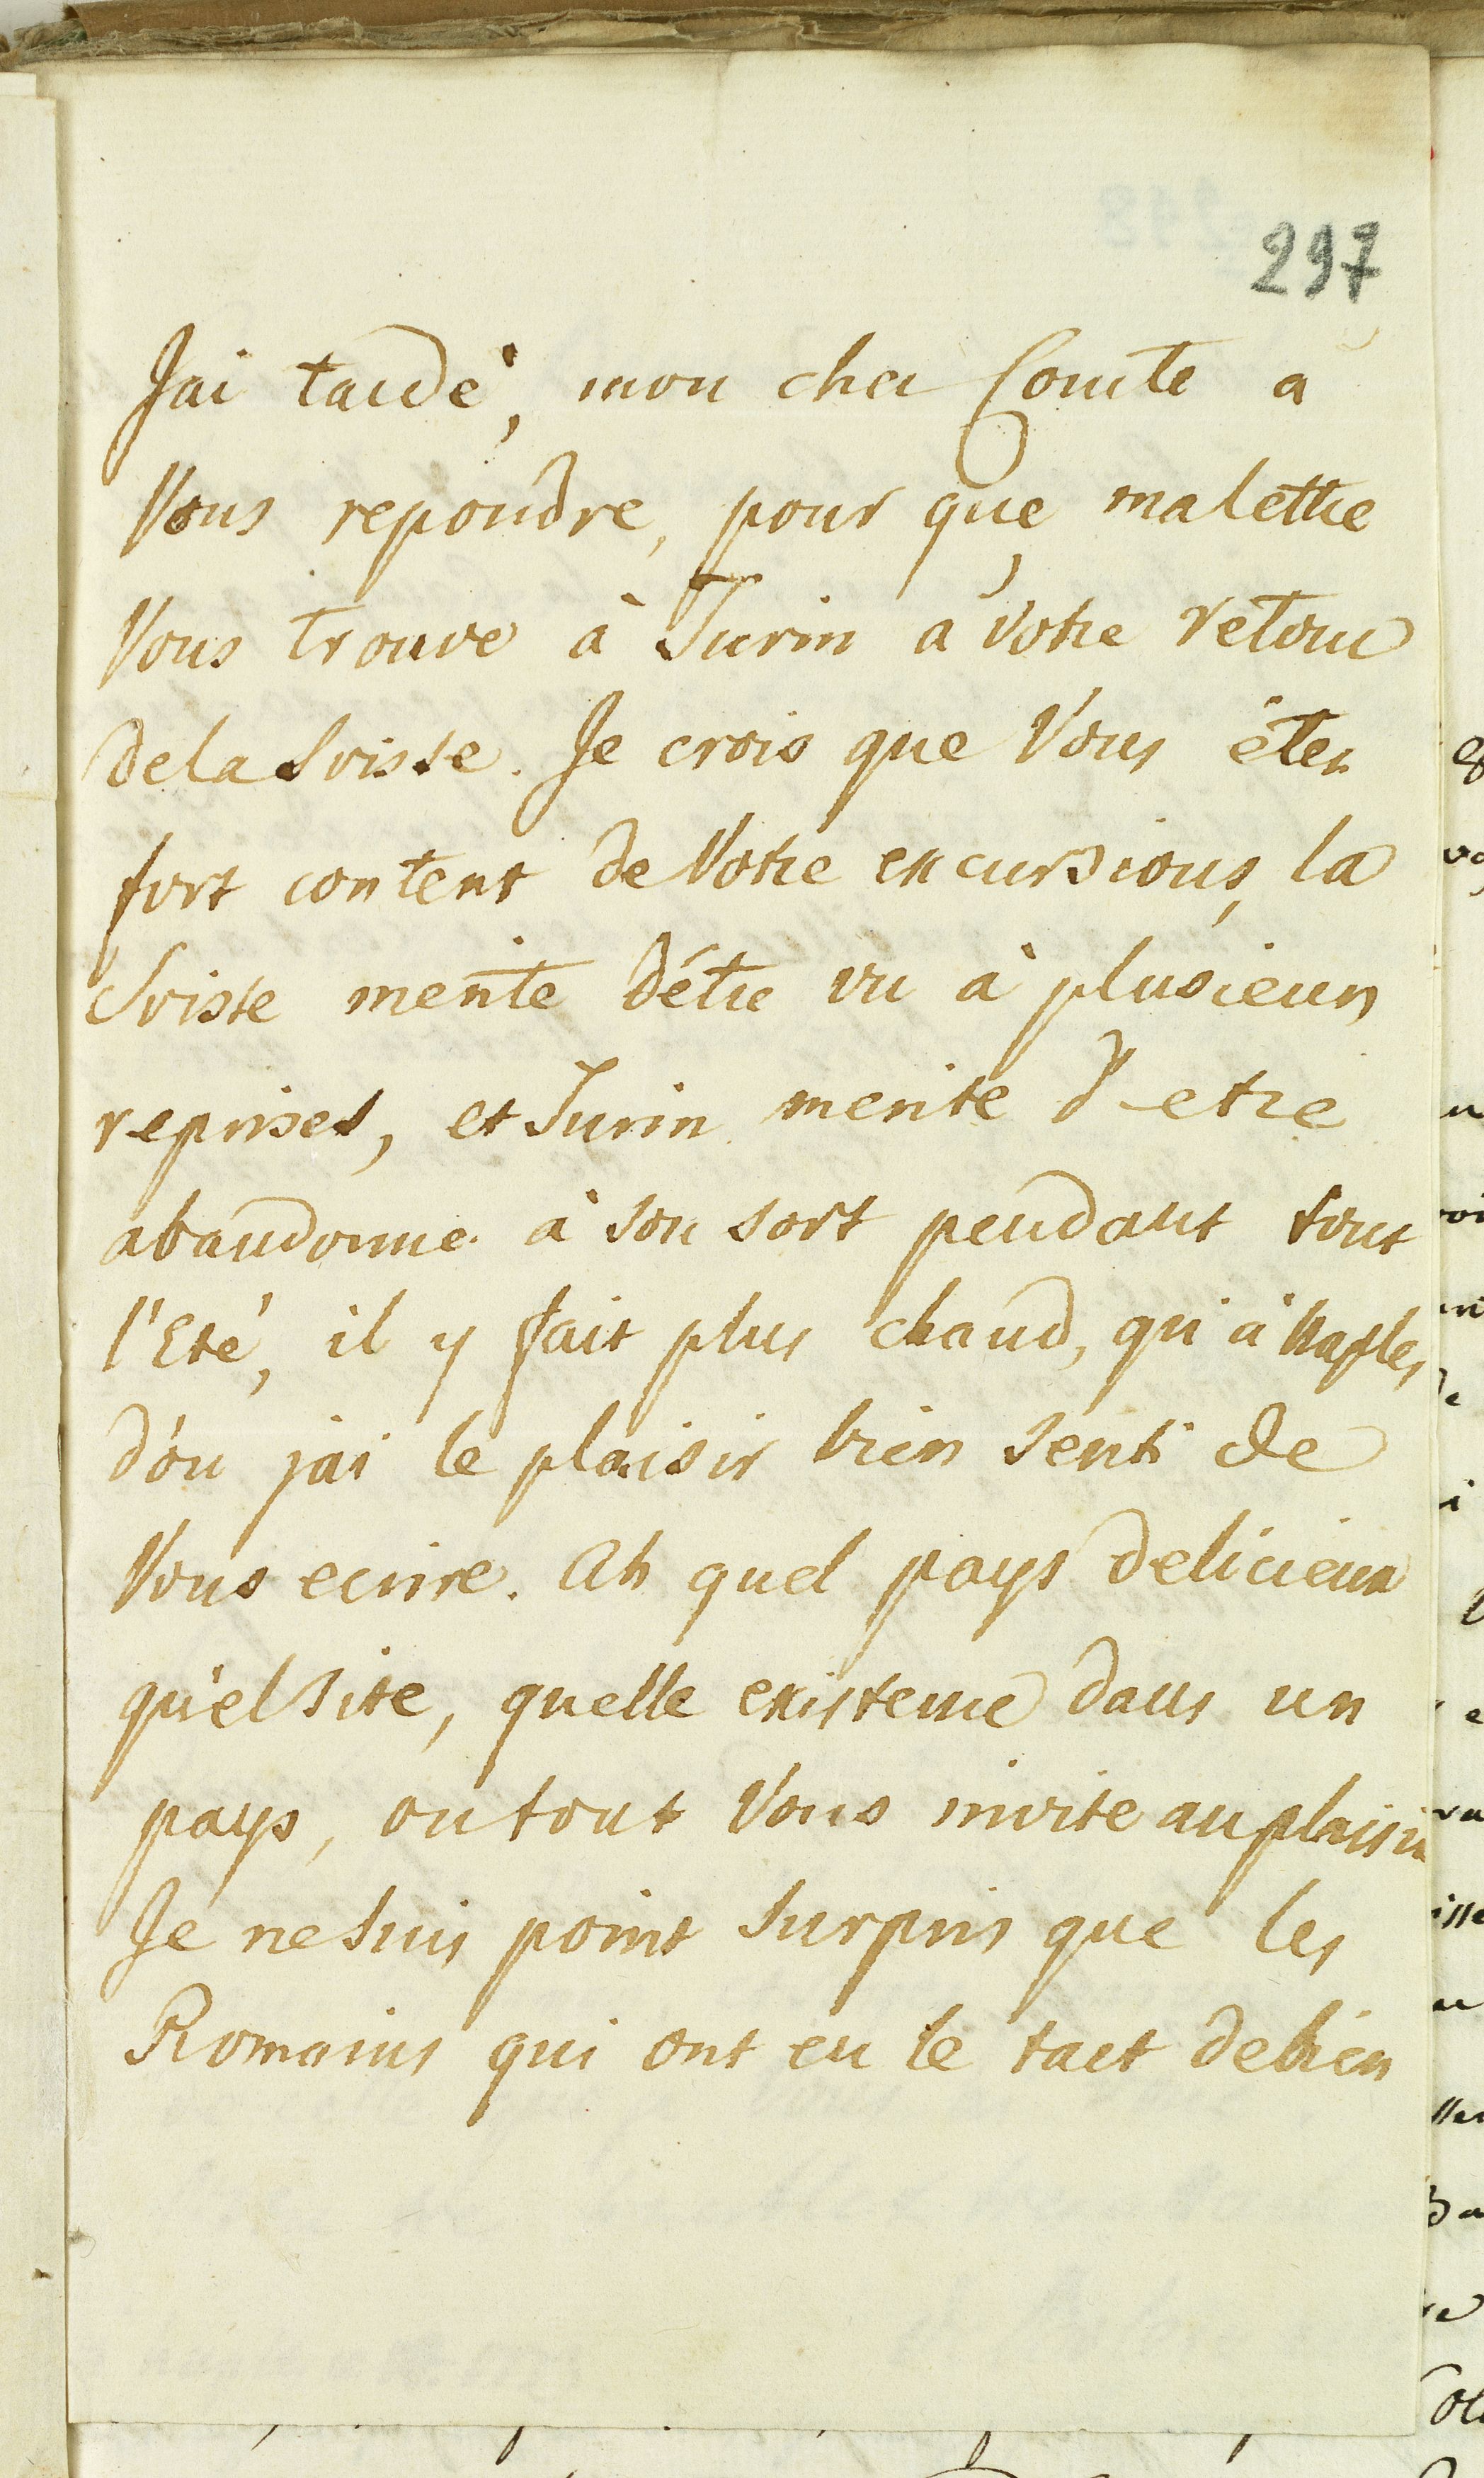 297
Jai tardé, mon cher Comte a
Vous repondre, pour que ma lettre
Vous trouve à Turin a Votre retour
de la Suisse. Je crois que Vous étes
fort content de Votre excursions, la
Suisse merite d'étre vu à plusieurs
reprises, et Turin merite d'etre
abandonne à son sort pendant tout
l'Eté, il y fait plus chaud, qu'à Naples,
d'ou jai le plaisir bien senti de
Vous ecrire. Ah quel pays delicieux
qu'el site, quelle existence dans un
pays, ou tout Vous invite au plaisir
Je ne suis point surpris que les
Romains qui ont eu le tact de bien